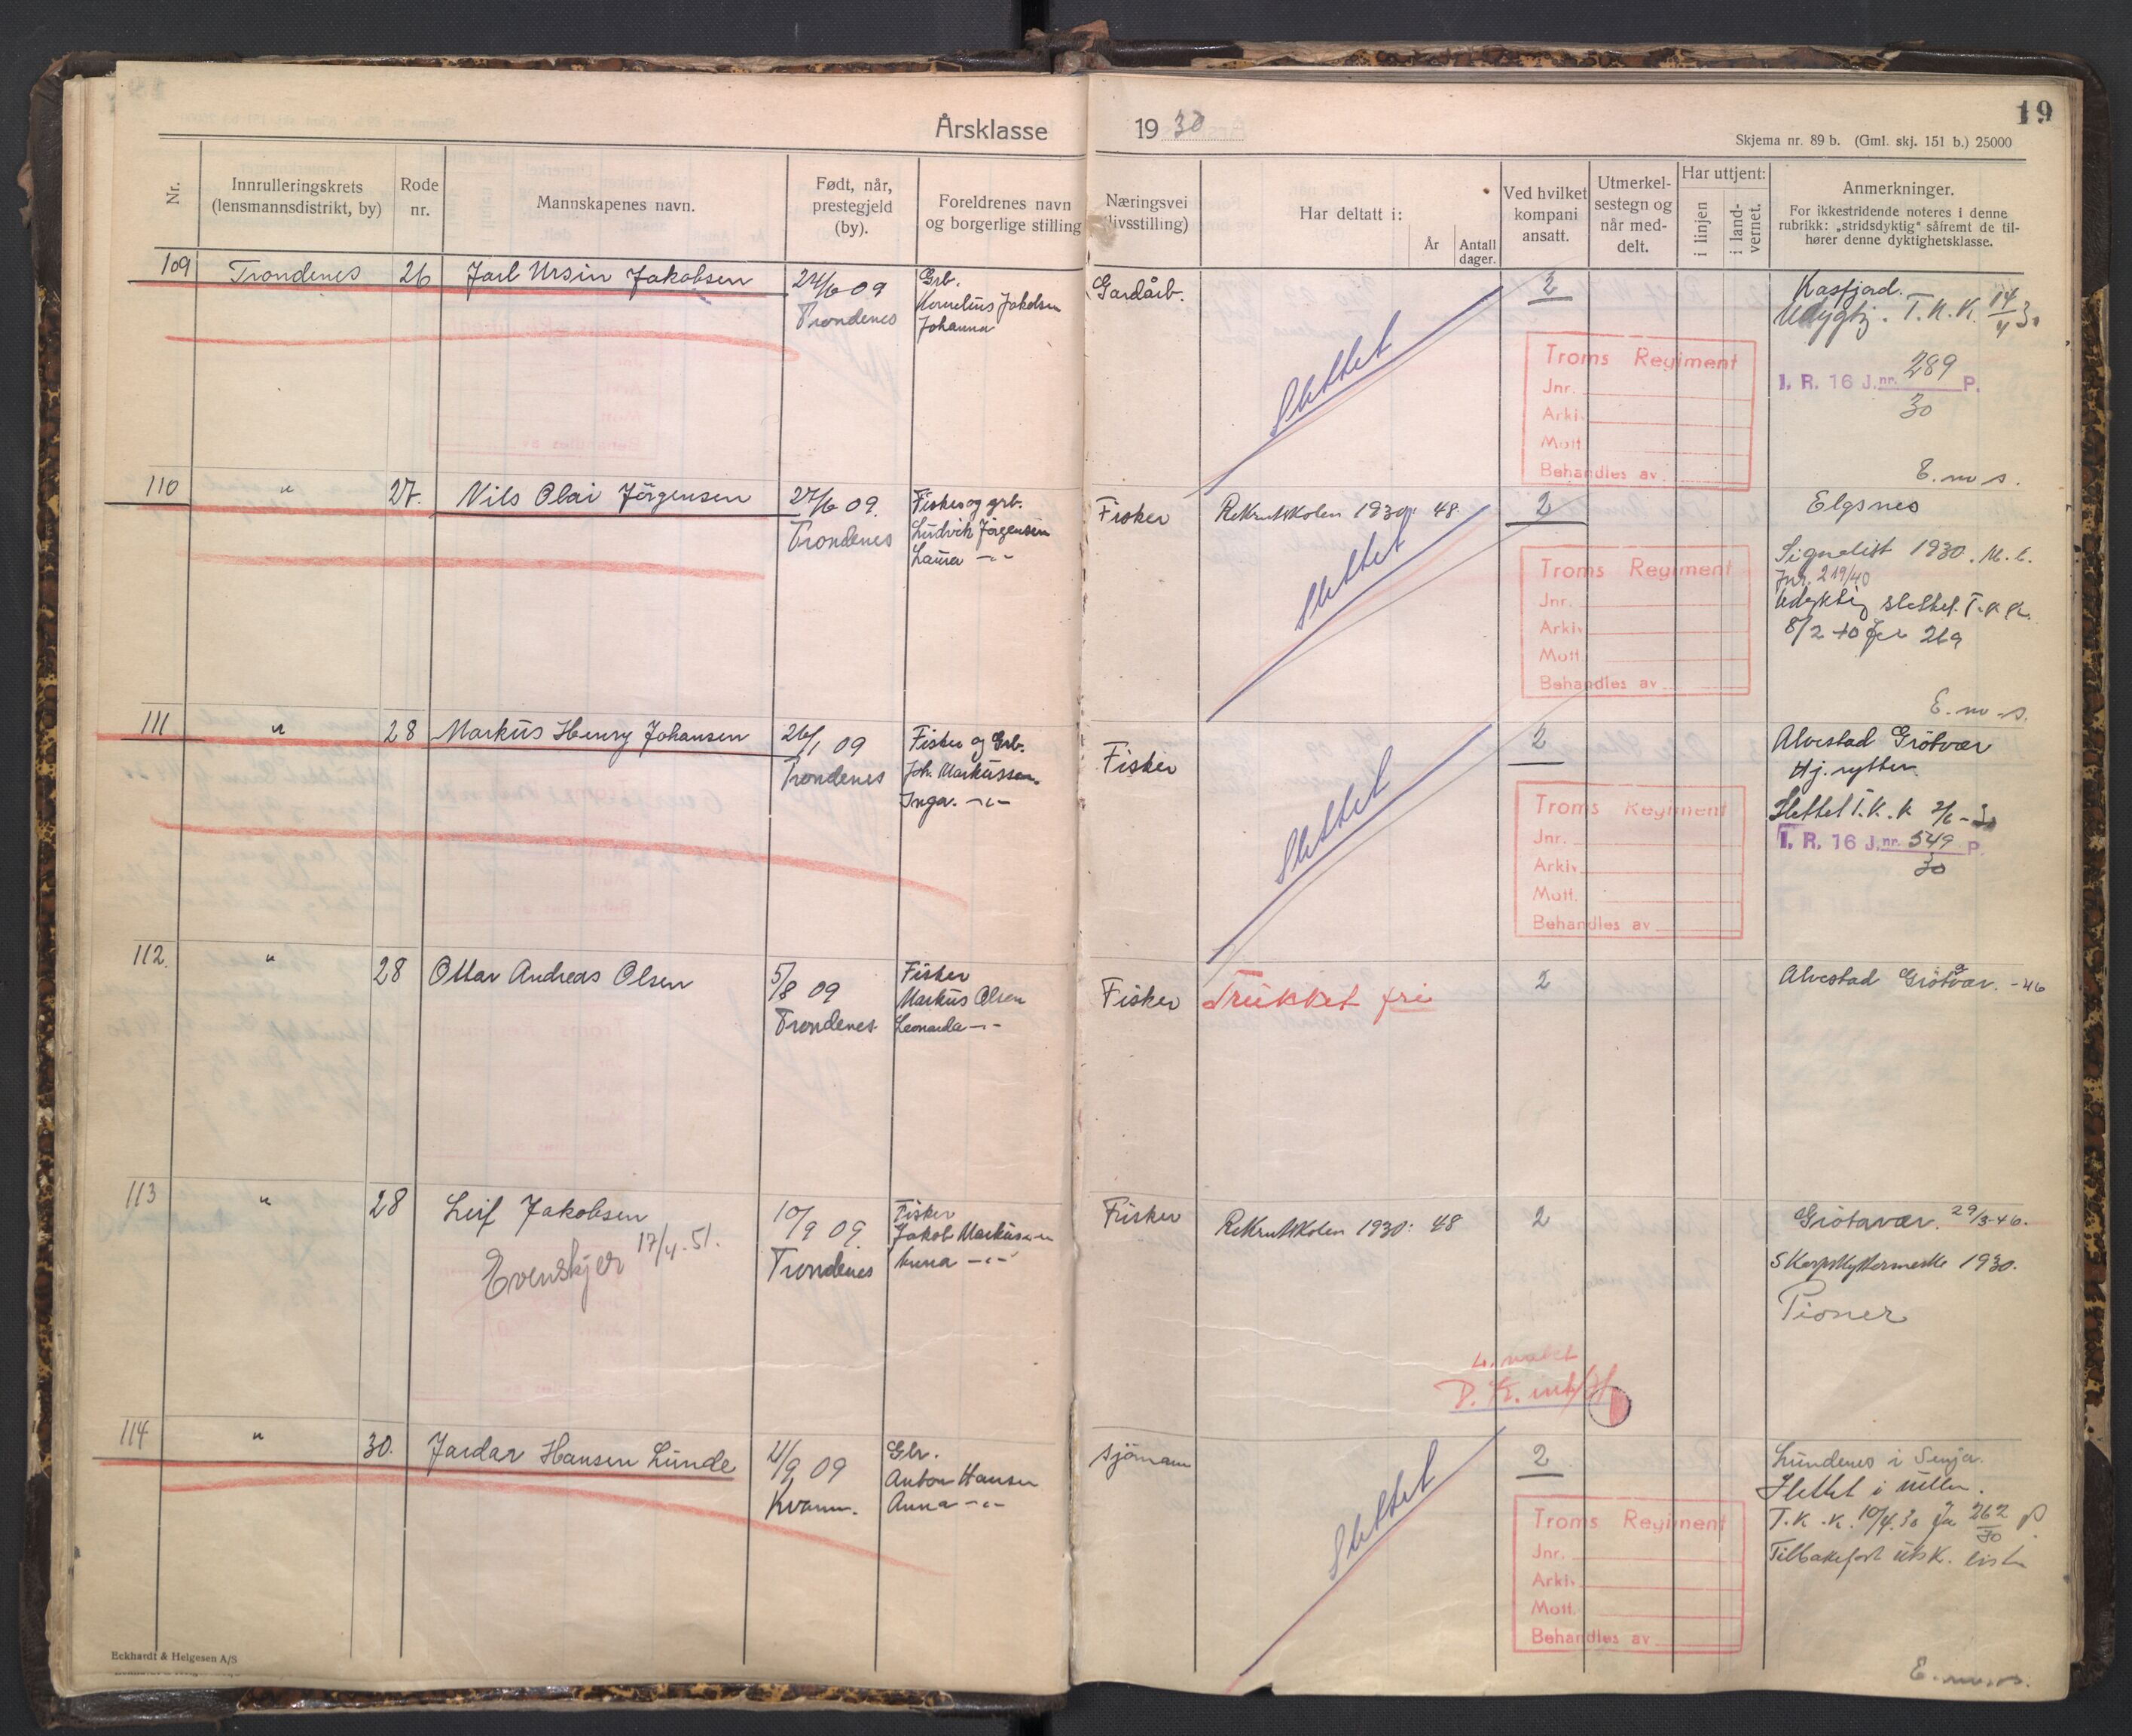 19
Årsklasse 1930
Skjema nr. 89 b. (Gml. skj. 151 b.) 25000
Nr.
Innrulleringskrets (lensmannsdistrikt, by)
Rode nr.
Mannskapenes navn.
Født, når, prestegjeld (by).
Foreldrenes navn og borgerlige stilling
Næringsvei (livsstilling)
Har deltatt i:
År
Antall dager.
Ved hvilket kompani ansatt.
Utmerkelsestegn og når meddelt.
Har uttjent:
i linjen
i landvernet.
Anmerkninger.
For ikkestridende noteres i denne rubrikk: „stridsdyktig“ såfremt de tilhører denne dyktighetsklasse.
109 Trondenes 26 Jarl Ursin Jakobsen 24/6 09 Grb. Gardarb. 2 Kasfjord.
Trondenes Kornelius Jakobsen
Johanna
Udygtig. T.K.K. 14/4 30
Slettet
Troms Regiment
Jnr.
Arkiv
Mott.
Behandles av
I. R. 16 J.nr. 289 P.
30
E.m.s.
110 " 27. Nils Olai Jörgensen 27/6 09. Fisker og grb. Fisker Rekrutskolen 1930: 48 2 Elgsnes
Trondenes Ludvik Jörgensen
Laura -"-
Slettet
Signalist 1930. M.t.
Jnr. 219/40
Udyktig slettet. T.K.K.
8/2 40 Jnr 269
Troms Regiment
Jnr.
Arkiv
Mott.
Behandles av
E.m.s.
111 " 28 Markus Henry Johansen 26/1 09 Fisker og Grb. Fisker 2 Alvestad Grötvær
Trondenes Joh. Markussen
Inga. -"-
Slettet
Hj. rytter.
Slettet T.K.K 2/6-30
I. R. 16 J.nr. 549 P.
30
Troms Regiment
Jnr.
Arkiv
Mott.
Behandles av
112. " 28 Ottar Andreas Olsen 5/8 09 Fisker Fisker Trukket fri 2 Alvestad Grötvær. -46
Trondenes Markus Olsen
Leonarda -"-
113 " 28 Leif Jakobsen 10/9 09. Fisker Fisker Rekrutskolen 1930: 48 2 Grötavær. 29/3-46.
Evenskjer 17/4.51.
Trondenes Jakob Markussen
Anna -"-
Skarpskyttermerke 1930.
Pioner
114 " 30. Jardar Hansen Lunde 21/9 09 Gbr. Sjömann 2 Lundenes i Senja.
Kvam. Anton Hansen
Anna -"-
Slettet
Slettet i rullen.
T.K.K. 10/4.30 Jnr 262/30 P
Tilbakeført utsk. liste
Troms Regiment
Jnr.
Arkiv
Mott.
Behandles av
E.m.s.
Eckhardt & Helgesen A/S